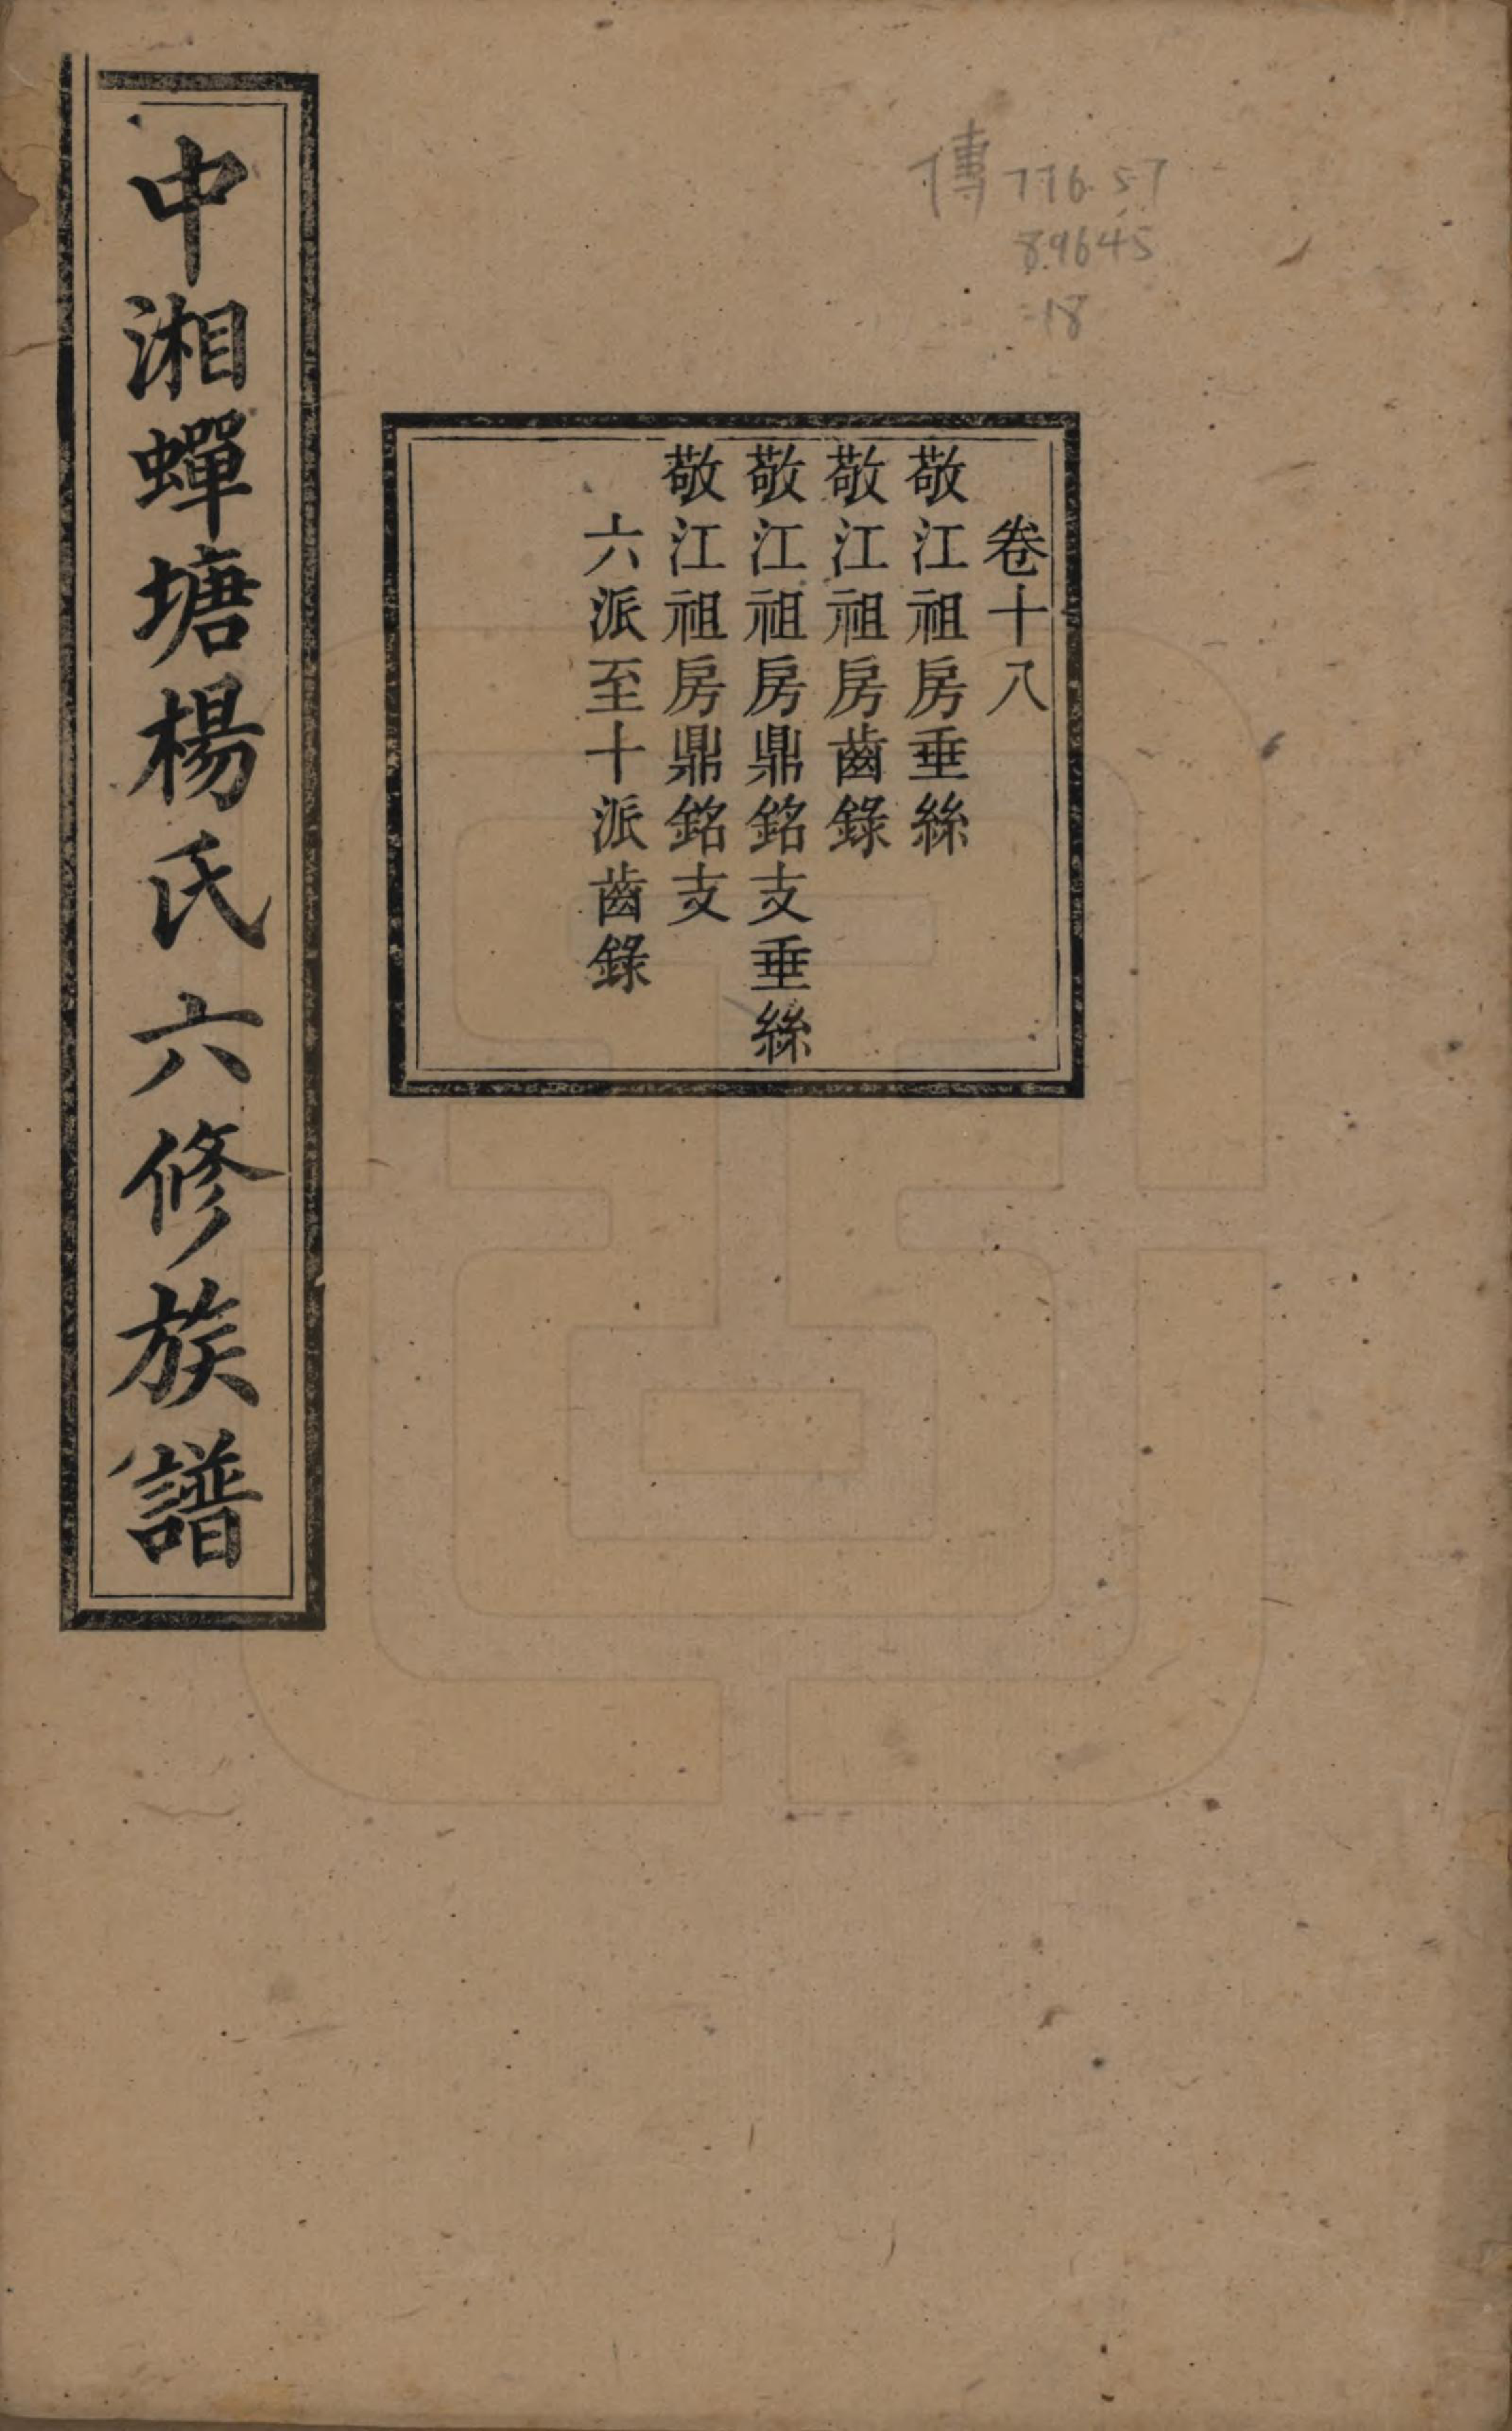 傳 776.57
89645
:18
卷十八
敬江祖房垂絲
敬江祖房齒錄
敬江祖房鼎銘支垂絲
敬江祖房鼎銘支
六派至十派齒錄
中湘蟬塘楊氏六修族譜